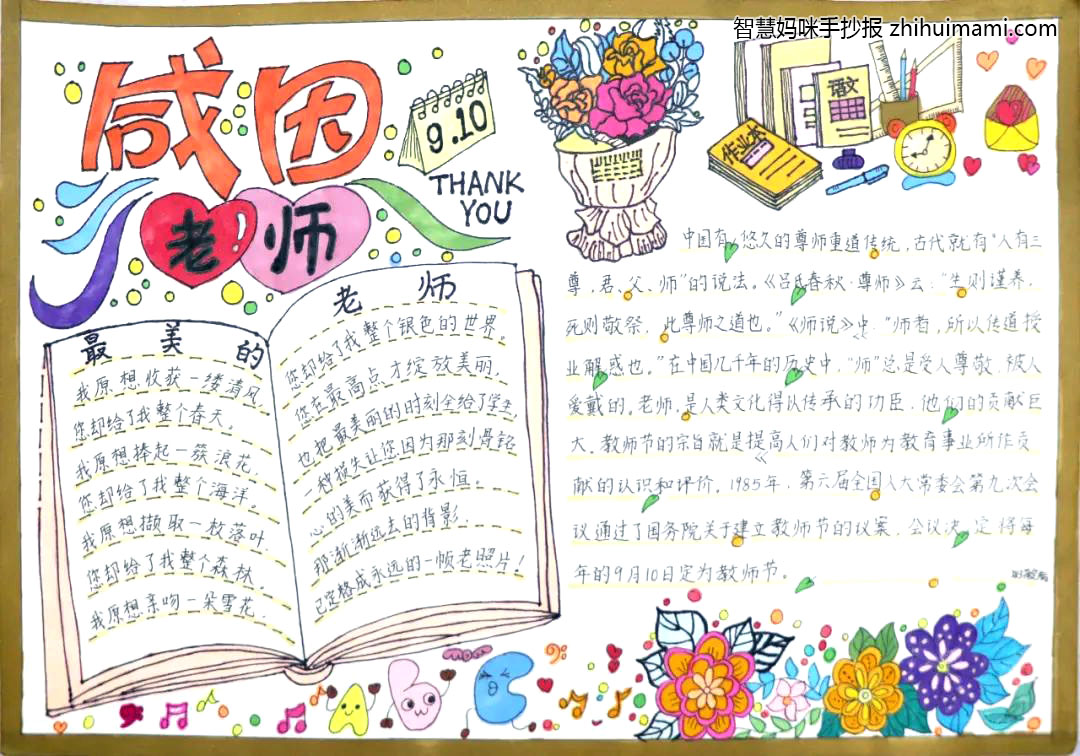 智慧妈咪手抄报 zhihuimami.com
感恩
老师
9.10
THANK
YOU
语文
作业本
最美的
老师
我原想收获一缕清风,
您却给了我整个春天。
我原想捧起一簇浪花,
您却给了我整个海洋。
我原想撷取一枚落叶,
您却给了我整个森林。
我原想亲吻一朵雪花,
您却给了我整个银色的世界。
您在最高点才绽放美丽,
也把最美丽的时刻全给了学生,
一种损失让您因为那刻骨铭
心的美而获得了永恒。
那渐渐远去的背影,
已定格成永远的一帧老照片!
中国有悠久的尊师重道传统,古代就有“人有三
尊,君、父、师”的说法。《吕氏春秋·尊师》云:“生则谨养,
死则敬祭,此尊师之道也。”《师说》中,“师者,所以传道授
业解惑也。”在中国几千年的历史中,“师”总是受人尊敬、被人
爱戴的。老师,是人类文化得以传承的功臣,他们的贡献巨
大。教师节的宗旨就是提高人们对教师为教育事业所作贡
献的认识和评价。1985年,第六届全国人大常委会第九次会
议通过了国务院关于建立教师节的议案,会议决定将每
年的9月10日定为教师节。
A b C